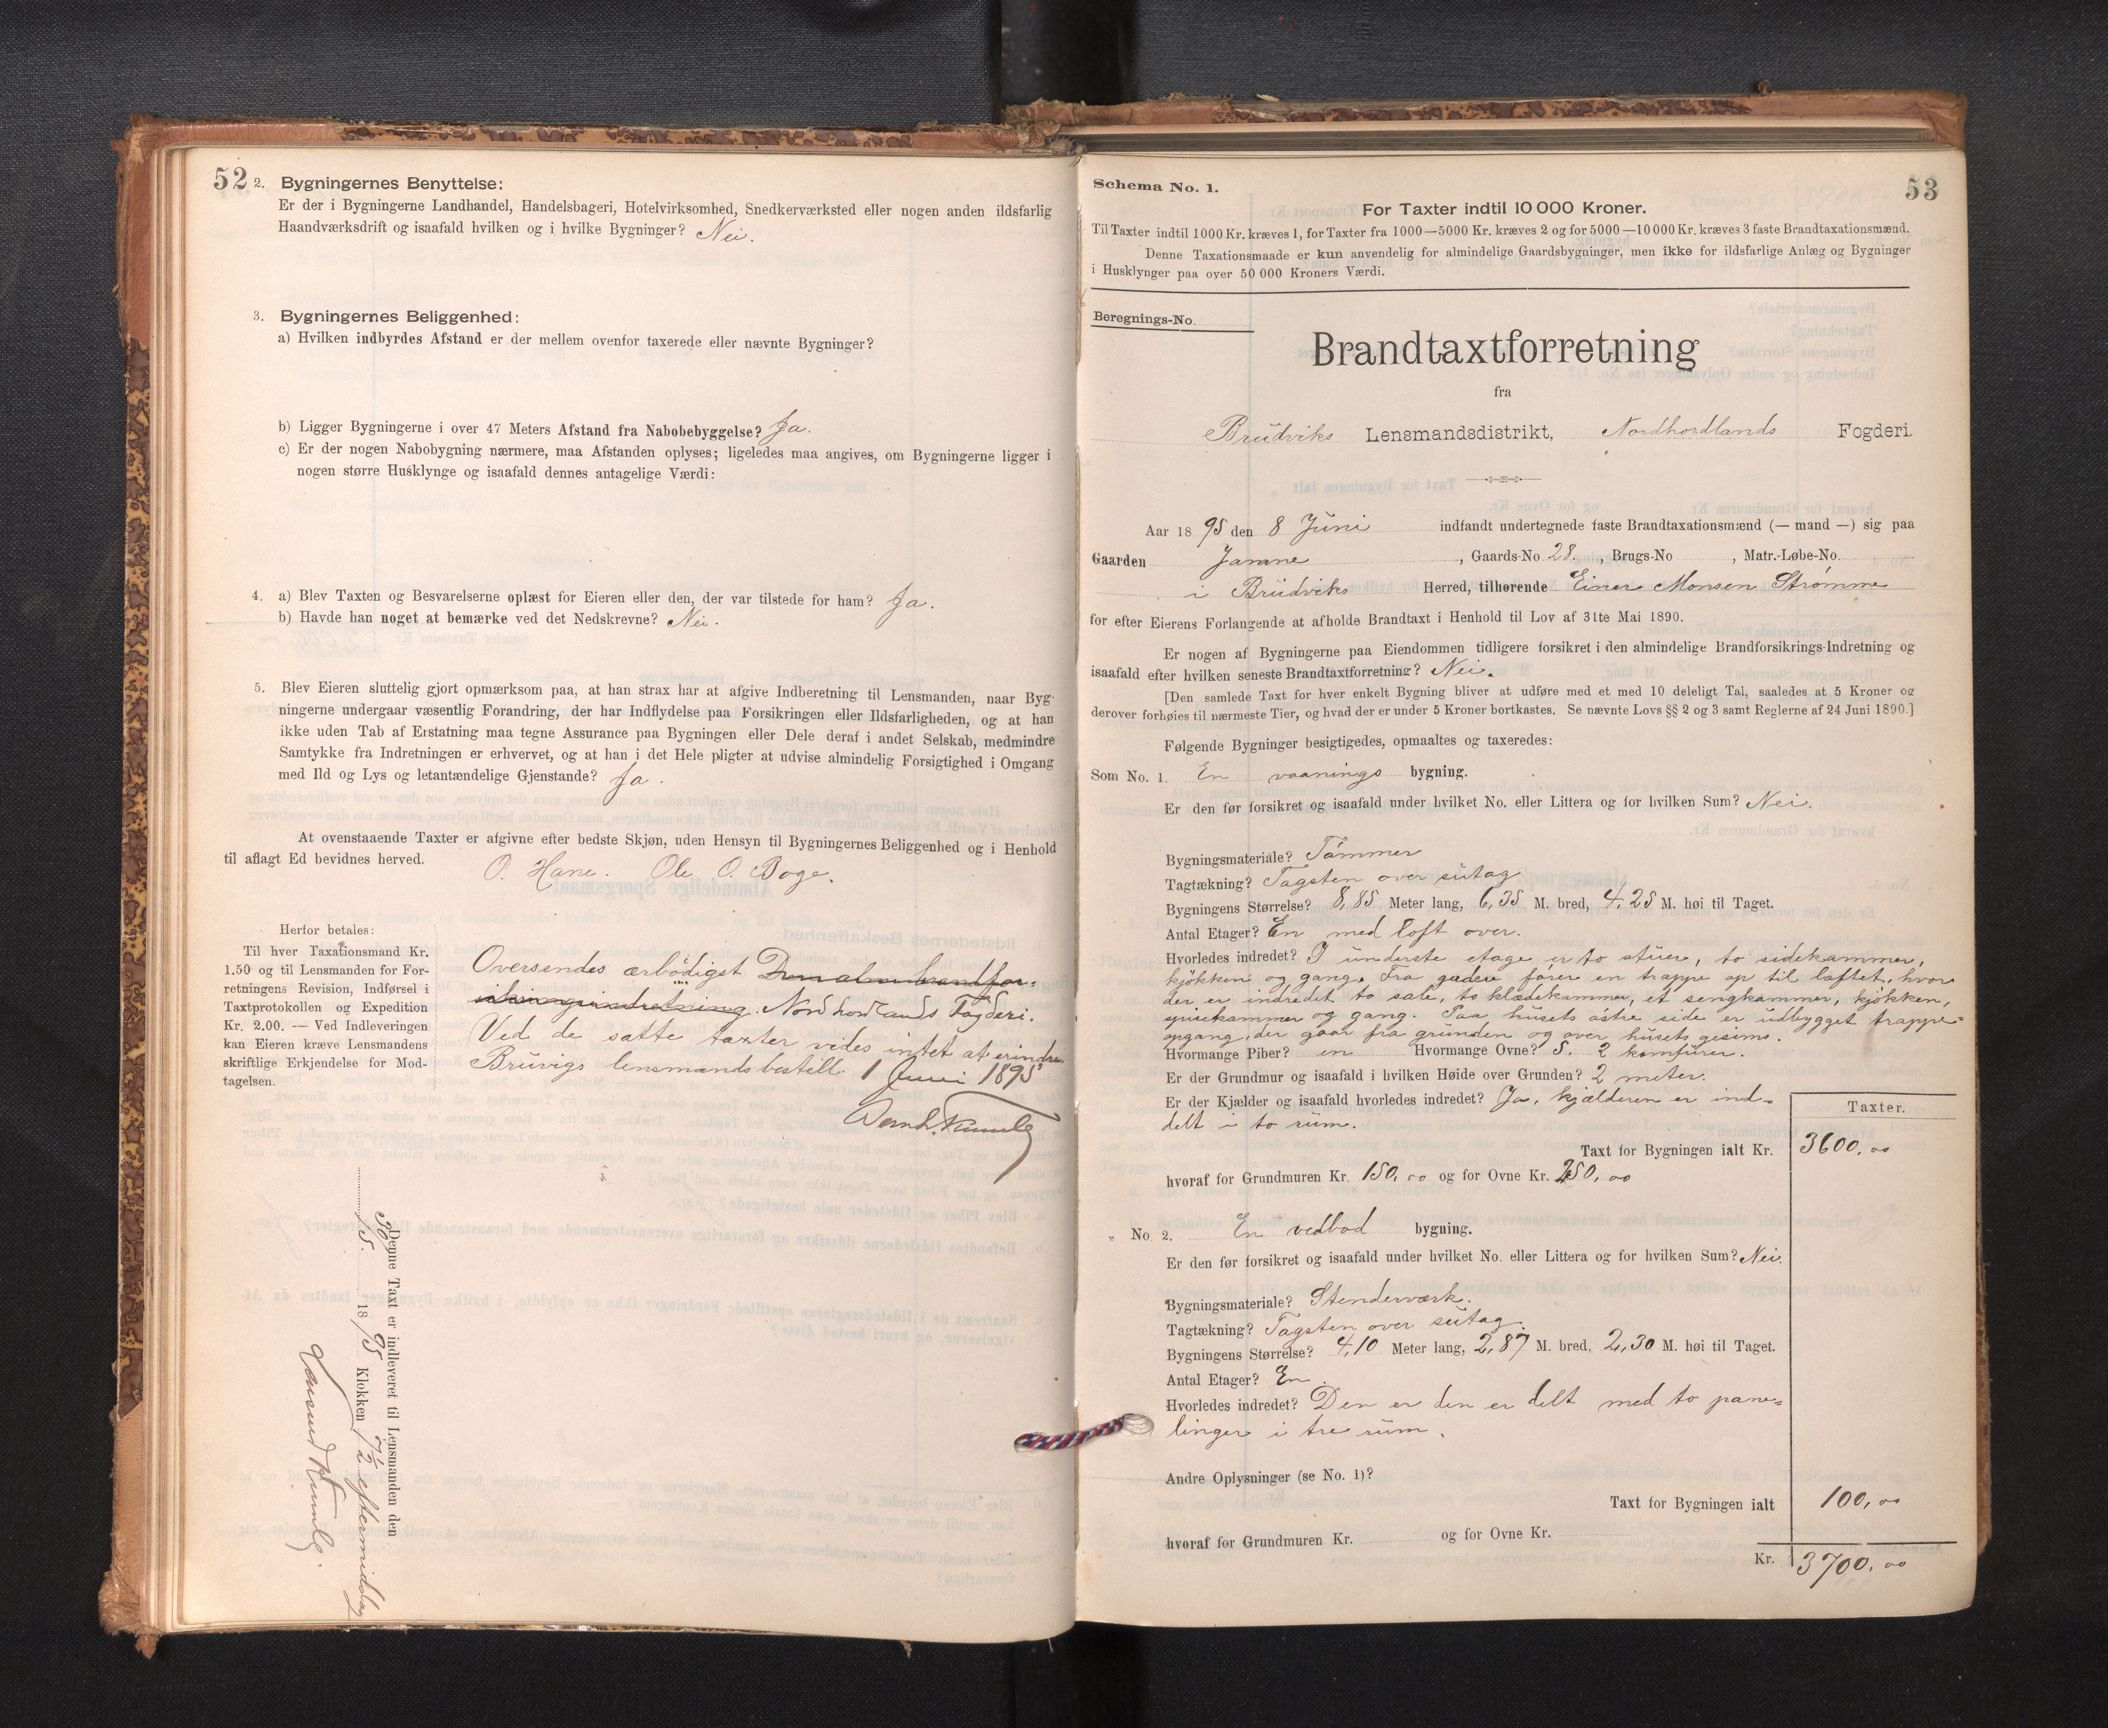 52
2. Bygningernes Benyttelse:
Er der i Bygningerne Landhandel, Handelsbageri, Hotelvirksomhed, Snedkerværksted eller nogen anden ildsfarlig
Haandværksdrift og isaafald hvilken og i hvilke Bygninger? Nei.
3. Bygningernes Beliggenhed:
a) Hvilken indbyrdes Afstand er der mellem ovenfor taxerede eller nævnte Bygninger?
b) Ligger Bygningerne i over 47 Meters Afstand fra Nabobebyggelse? Ja.
c) Er der nogen Nabobygning nærmere, maa Afstanden oplyses; ligeledes maa angives, om Bygningerne ligger i
nogen større Husklynge og isaafald dennes antagelige Værdi:
4. a) Blev Taxten og Besvarelserne oplæst for Eieren eller den, der var tilstede for ham? Ja.
b) Havde han noget at bemærke ved det Nedskrevne? Nei.
5. Blev Eieren sluttelig gjort opmærksom paa, at han strax har at afgive Indberetning til Lensmanden, naar Byg-
ningerne undergaar væsentlig Forandring, der har Indflydelse paa Forsikringen eller Ildsfarligheden, og at han
ikke uden Tab af Erstatning maa tegne Assurance paa Bygningen eller Dele deraf i andet Selskab, medmindre
Samtykke fra Indretningen er erhvervet, og at han i det Hele pligter at udvise almindelig Forsigtighed i Omgang
med Ild og Lys og letantændelige Gjenstande? Ja.
At ovenstaaende Taxter er afgivne efter bedste Skjøn, uden Hensyn til Bygningernes Beliggenhed og i Henhold
til aflagt Ed bevidnes herved.
O. Hane. Ole O. Boge.
Herfor betales:
Til hver Taxationsmand Kr.
1.50 og til Lensmanden for For-
retningens Revision, Indførsel i
Taxtprotokollen og Expedition
Kr. 2.00. — Ved Indleveringen
kan Eieren kræve Lensmandens
skriftlige Erkjendelse for Mod-
tagelsen.
Oversendes ærbødigst Den alm. brandfor-
sikringsindretning. Nordhordlands Fogderi.
Ved de satte taxter vides intet at erindre.
Bruvigs lensmandsbestill. 1 Juni 1895
Denne Taxt er indleveret til Lensmanden den
30/5. 1895 Klokken 7½ eftermiddag
Schema No. 1.
53
For Taxter indtil 10 000 Kroner.
Til Taxter indtil 1000 Kr. kræves 1, for Taxter fra 1000—5000 Kr. kræves 2 og for 5000—10 000 Kr. kræves 3 faste Brandtaxationsmænd.
Denne Taxationsmaade er kun anvendelig for almindelige Gaardsbygninger, men ikke for ildsfarlige Anlæg og Bygninger
i Husklynger paa over 50 000 Kroners Værdi.
Beregnings-No.
Brandtaxtforretning
fra
Brudviks Lensmandsdistrikt, Nordhordlands Fogderi.
Aar 1895 den 8 Juni indfandt undertegnede faste Brandtaxationsmænd (— mand —) sig paa
Gaarden Jamne, Gaards-No 28, Brugs-No , Matr.-Løbe-No.
i Brudviks Herred, tilhørende Einer Monsen Strømme
for efter Eierens Forlangende at afholde Brandtaxt i Henhold til Lov af 31te Mai 1890.
Er nogen af Bygningerne paa Eiendommen tidligere forsikret i den almindelige Brandforsikrings-Indretning og
isaafald efter hvilken seneste Brandtaxtforretning? Nei.
[Den samlede Taxt for hver enkelt Bygning bliver at udføre med et med 10 deleligt Tal, saaledes at 5 Kroner og
derover forhøies til nærmeste Tier, og hvad der er under 5 Kroner bortkastes. Se nævnte Lovs §§ 2 og 3 samt Reglerne af 24 Juni 1890.]
Følgende Bygninger besigtigedes, opmaaltes og taxeredes:
Som No. 1. En vaanings bygning.
Er den før forsikret og isaafald under hvilket No. eller Littera og for hvilken Sum? Nei.
Bygningsmateriale? Tømmer
Tagtækning? Tagsten over sutag
Bygningens Størrelse? 8,85 Meter lang, 6,35 M. bred, 4,25 M. høi til Taget.
Antal Etager? En med loft over.
Hvorledes indredet? I underste etage er to stuer, to sidekammer,
kjøkken og gang. Fra gaden fører en trappe op til loftet, hvor
der er indredet to sale, to klædekammer, et sengkammer, kjøkken,
spisekammer og gang. Paa husets østre side er udbygget trappe-
opgang, der gaar fra grunden og over husets gesims.
Hvormange Piber? en Hvormange Ovne? 5. 2 komfurer.
Er der Grundmur og isaafald i hvilken Høide over Grunden? 2 meter.
Er der Kjælder og isaafald hvorledes indredet? Ja, kjælderen er ind-
delt i to rum.
Taxter.
Taxt for Bygningen ialt Kr. 3600,00
hvoraf for Grundmuren Kr. 150,00 og for Ovne Kr. 250,00
„ No. 2. En vedbod bygning.
Er den før forsikret og isaafald under hvilket No. eller Littera og for hvilken Sum? Nei.
Bygningsmateriale? Stenderværk.
Tagtækning? Tagsten over sutag.
Bygningens Størrelse? 4,10 Meter lang, 2,87 M. bred, 2,30 M. høi til Taget.
Antal Etager? En.
Hvorledes indredet? Den er den er delt med to pane-
linger i tre rum.
Andre Oplysninger (se No. 1)?
Taxt for Bygningen ialt 100,00
hvoraf for Grundmuren Kr. og for Ovne Kr.
Kr. 3700,00